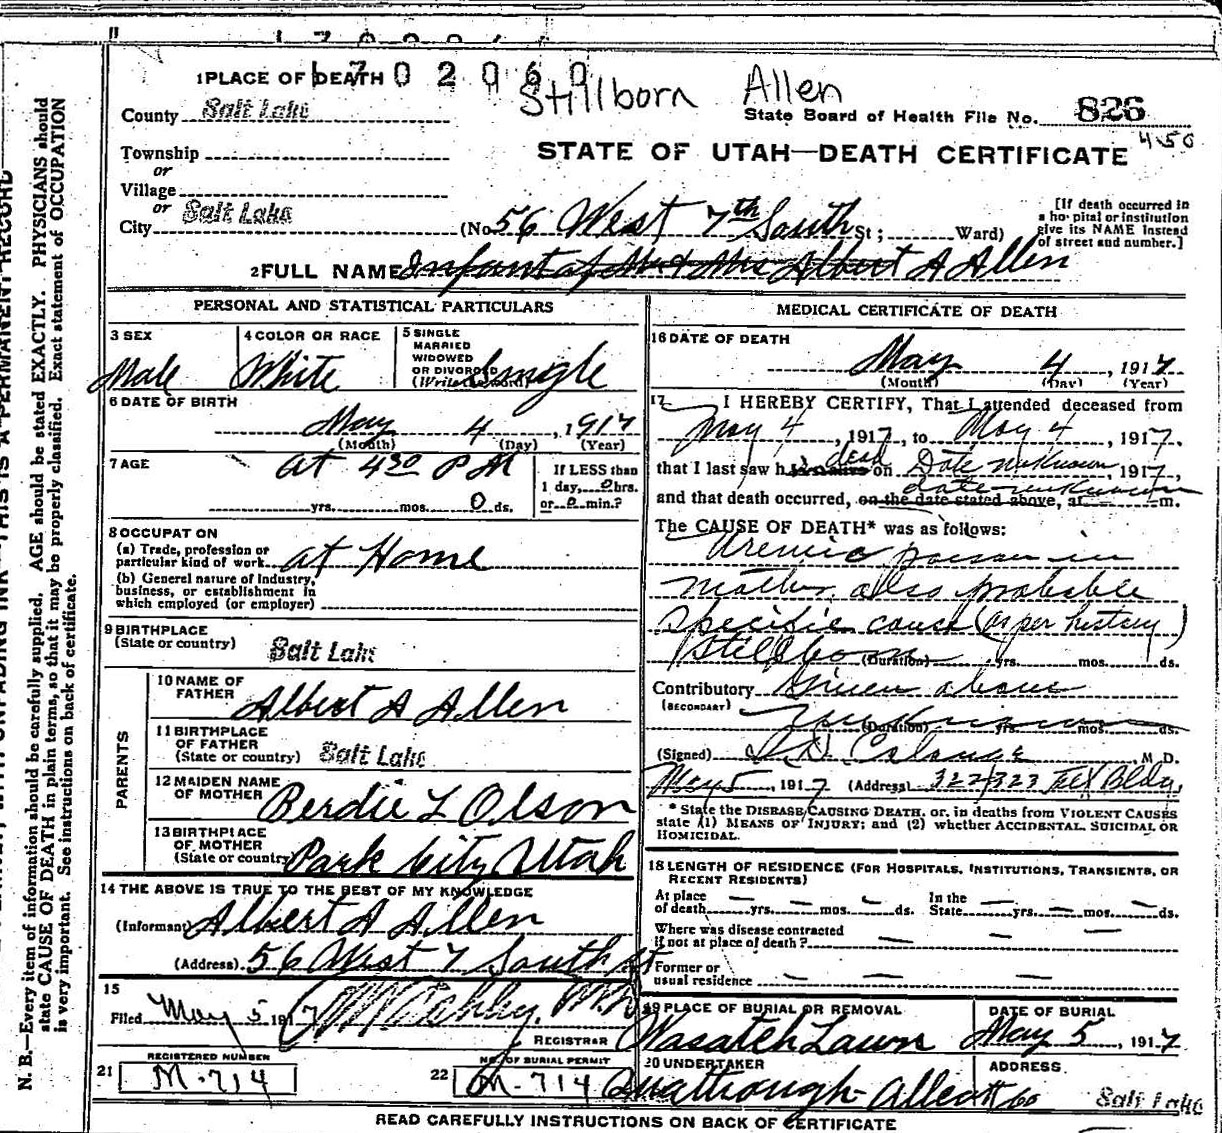 1702060
Stillborn Allen
1 PLACE OF DEATH
County Salt Lake
State Board of Health File No. 826
450
Township
or
STATE OF UTAH—DEATH CERTIFICATE
Village
or
City Salt Lake
(No 56 West 7th South St; Ward)
[If death occurred in
a hospital or institution
give its NAME instead
of street and number.]
2 FULL NAME Infant of Mr & Mrs Albert A Allen
PERSONAL AND STATISTICAL PARTICULARS
3 SEX
Male
4 COLOR OR RACE
White
5 SINGLE
MARRIED
WIDOWED
OR DIVORCED
(Write the word)
Single
6 DATE OF BIRTH
May 4, 1917
(Month) (Day) (Year)
7 AGE
at 430 PM
yrs. mos. 0 ds.
If LESS than
1 day, 0 hrs.
or 0 min.?
8 OCCUPATION
(a) Trade, profession or
particular kind of work at Home
(b) General nature of industry,
business, or establishment in
which employed (or employer)
9 BIRTHPLACE
(State or country) Salt Lake
PARENTS
10 NAME OF
FATHER
Albert A Allen
11 BIRTHPLACE
OF FATHER
(State or country) Salt Lake
12 MAIDEN NAME
OF MOTHER
Berdie L Olson
13 BIRTHPLACE
OF MOTHER
(State or country) Park City Utah
14 THE ABOVE IS TRUE TO THE BEST OF MY KNOWLEDGE
(Informant) Albert A Allen
(Address) 56 West 7 South St
15
Filed May 5 1917
REGISTRAR
REGISTERED NUMBER
21 M-714
NO. OF BURIAL PERMIT
22 M-714
MEDICAL CERTIFICATE OF DEATH
16 DATE OF DEATH
May 4, 1917
(Month) (Day) (Year)
17 I HEREBY CERTIFY, That I attended deceased from
May 4, 1917, to May 4, 1917,
that I last saw h dead on Date unknown, 1917,
date unknown
and that death occurred, on the date stated above, at m.
The CAUSE OF DEATH* was as follows:
Uremic poison in
mother, also probable
specific cause (as per history)
Stillborn (Duration) yrs. mos. ds.
Contributory Given above
(SECONDARY)
Unknown (Duration) yrs. mos. ds.
(Signed) M D.
May 5, 1917 (Address) 322/323 Bldg.
* State the DISEASE CAUSING DEATH, or, in deaths from VIOLENT CAUSES
state (1) MEANS OF INJURY; and (2) whether ACCIDENTAL, SUICIDAL OR
HOMICIDAL.
18 LENGTH OF RESIDENCE (FOR HOSPITALS, INSTITUTIONS, TRANSIENTS, OR
RECENT RESIDENTS)
At place
of death yrs. mos. ds.
In the
State yrs. mos. ds.
Where was disease contracted
if not at place of death?
Former or
usual residence
19 PLACE OF BURIAL OR REMOVAL
Wasatch Lawn
DATE OF BURIAL
May 5, 1917
20 UNDERTAKER
ADDRESS
Salt Lake
READ CAREFULLY INSTRUCTIONS ON BACK OF CERTIFICATE
N. B.—Every item of information should be carefully supplied. AGE should be stated EXACTLY. PHYSICIANS should
state CAUSE OF DEATH in plain terms, so that it may be properly classified. Exact statement of OCCUPATION
is very important. See instructions on back of certificate.